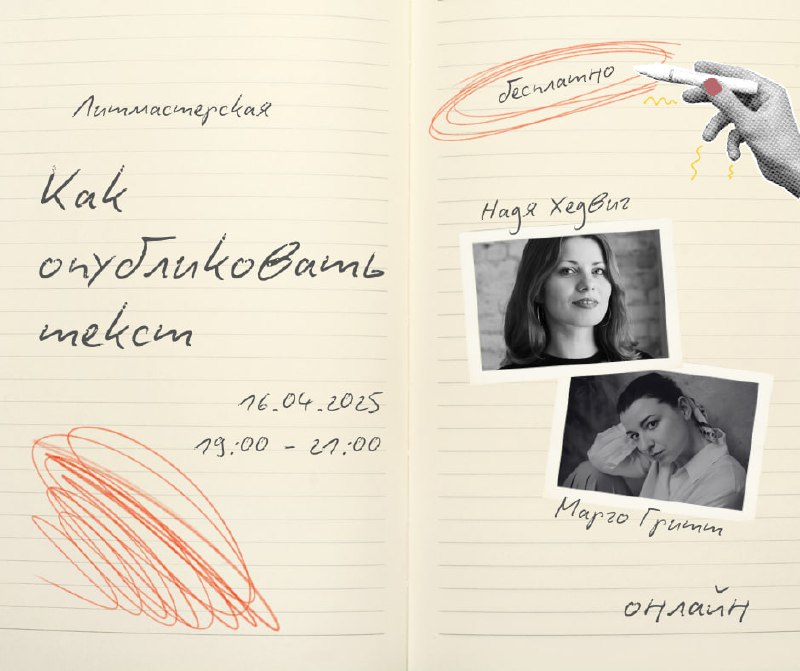 Литмастерская
Как
опубликовать
текст
16.04.2025
19:00 - 21:00
бесплатно
Надя Хедвиг
Марго Гритт
онлайн